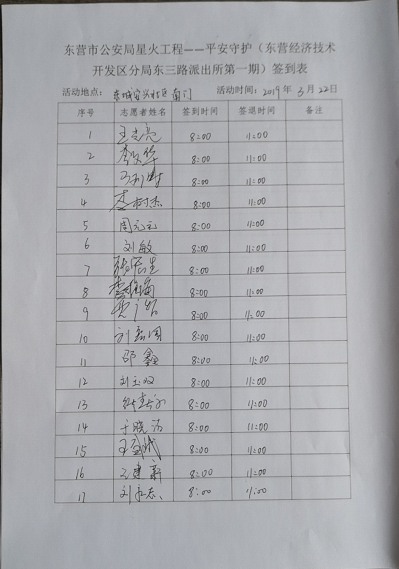 东营市公安局星火工程——平安守护（东营经济技术
开发区分局东三路派出所第一期）签到表
活动地点： 东城 社区 南门 活动时间：2019年3月22日
序号 志愿者姓名 签到时间 签退时间 备注
1 王志亮 8:00 11:00
2 李 华 8:00 11:00
3 8:00 11:00
4 李树杰 8:00 11:00
5 周元元 8:00 11:00
6 刘敏 8:00 11:00
7 8:00 11:00
8 8:00 11:00
9 8:00 11:00
10 刘 国 8:00 11:00
11 邵鑫 8:00 11:00
12 刘玉双 8:00 11:00
13 8:00 11:00
14 于晓 8:00 11:00
15 8:00 11:00
16 建新 8:00 11:00
17 刘永志 8:00 11:00